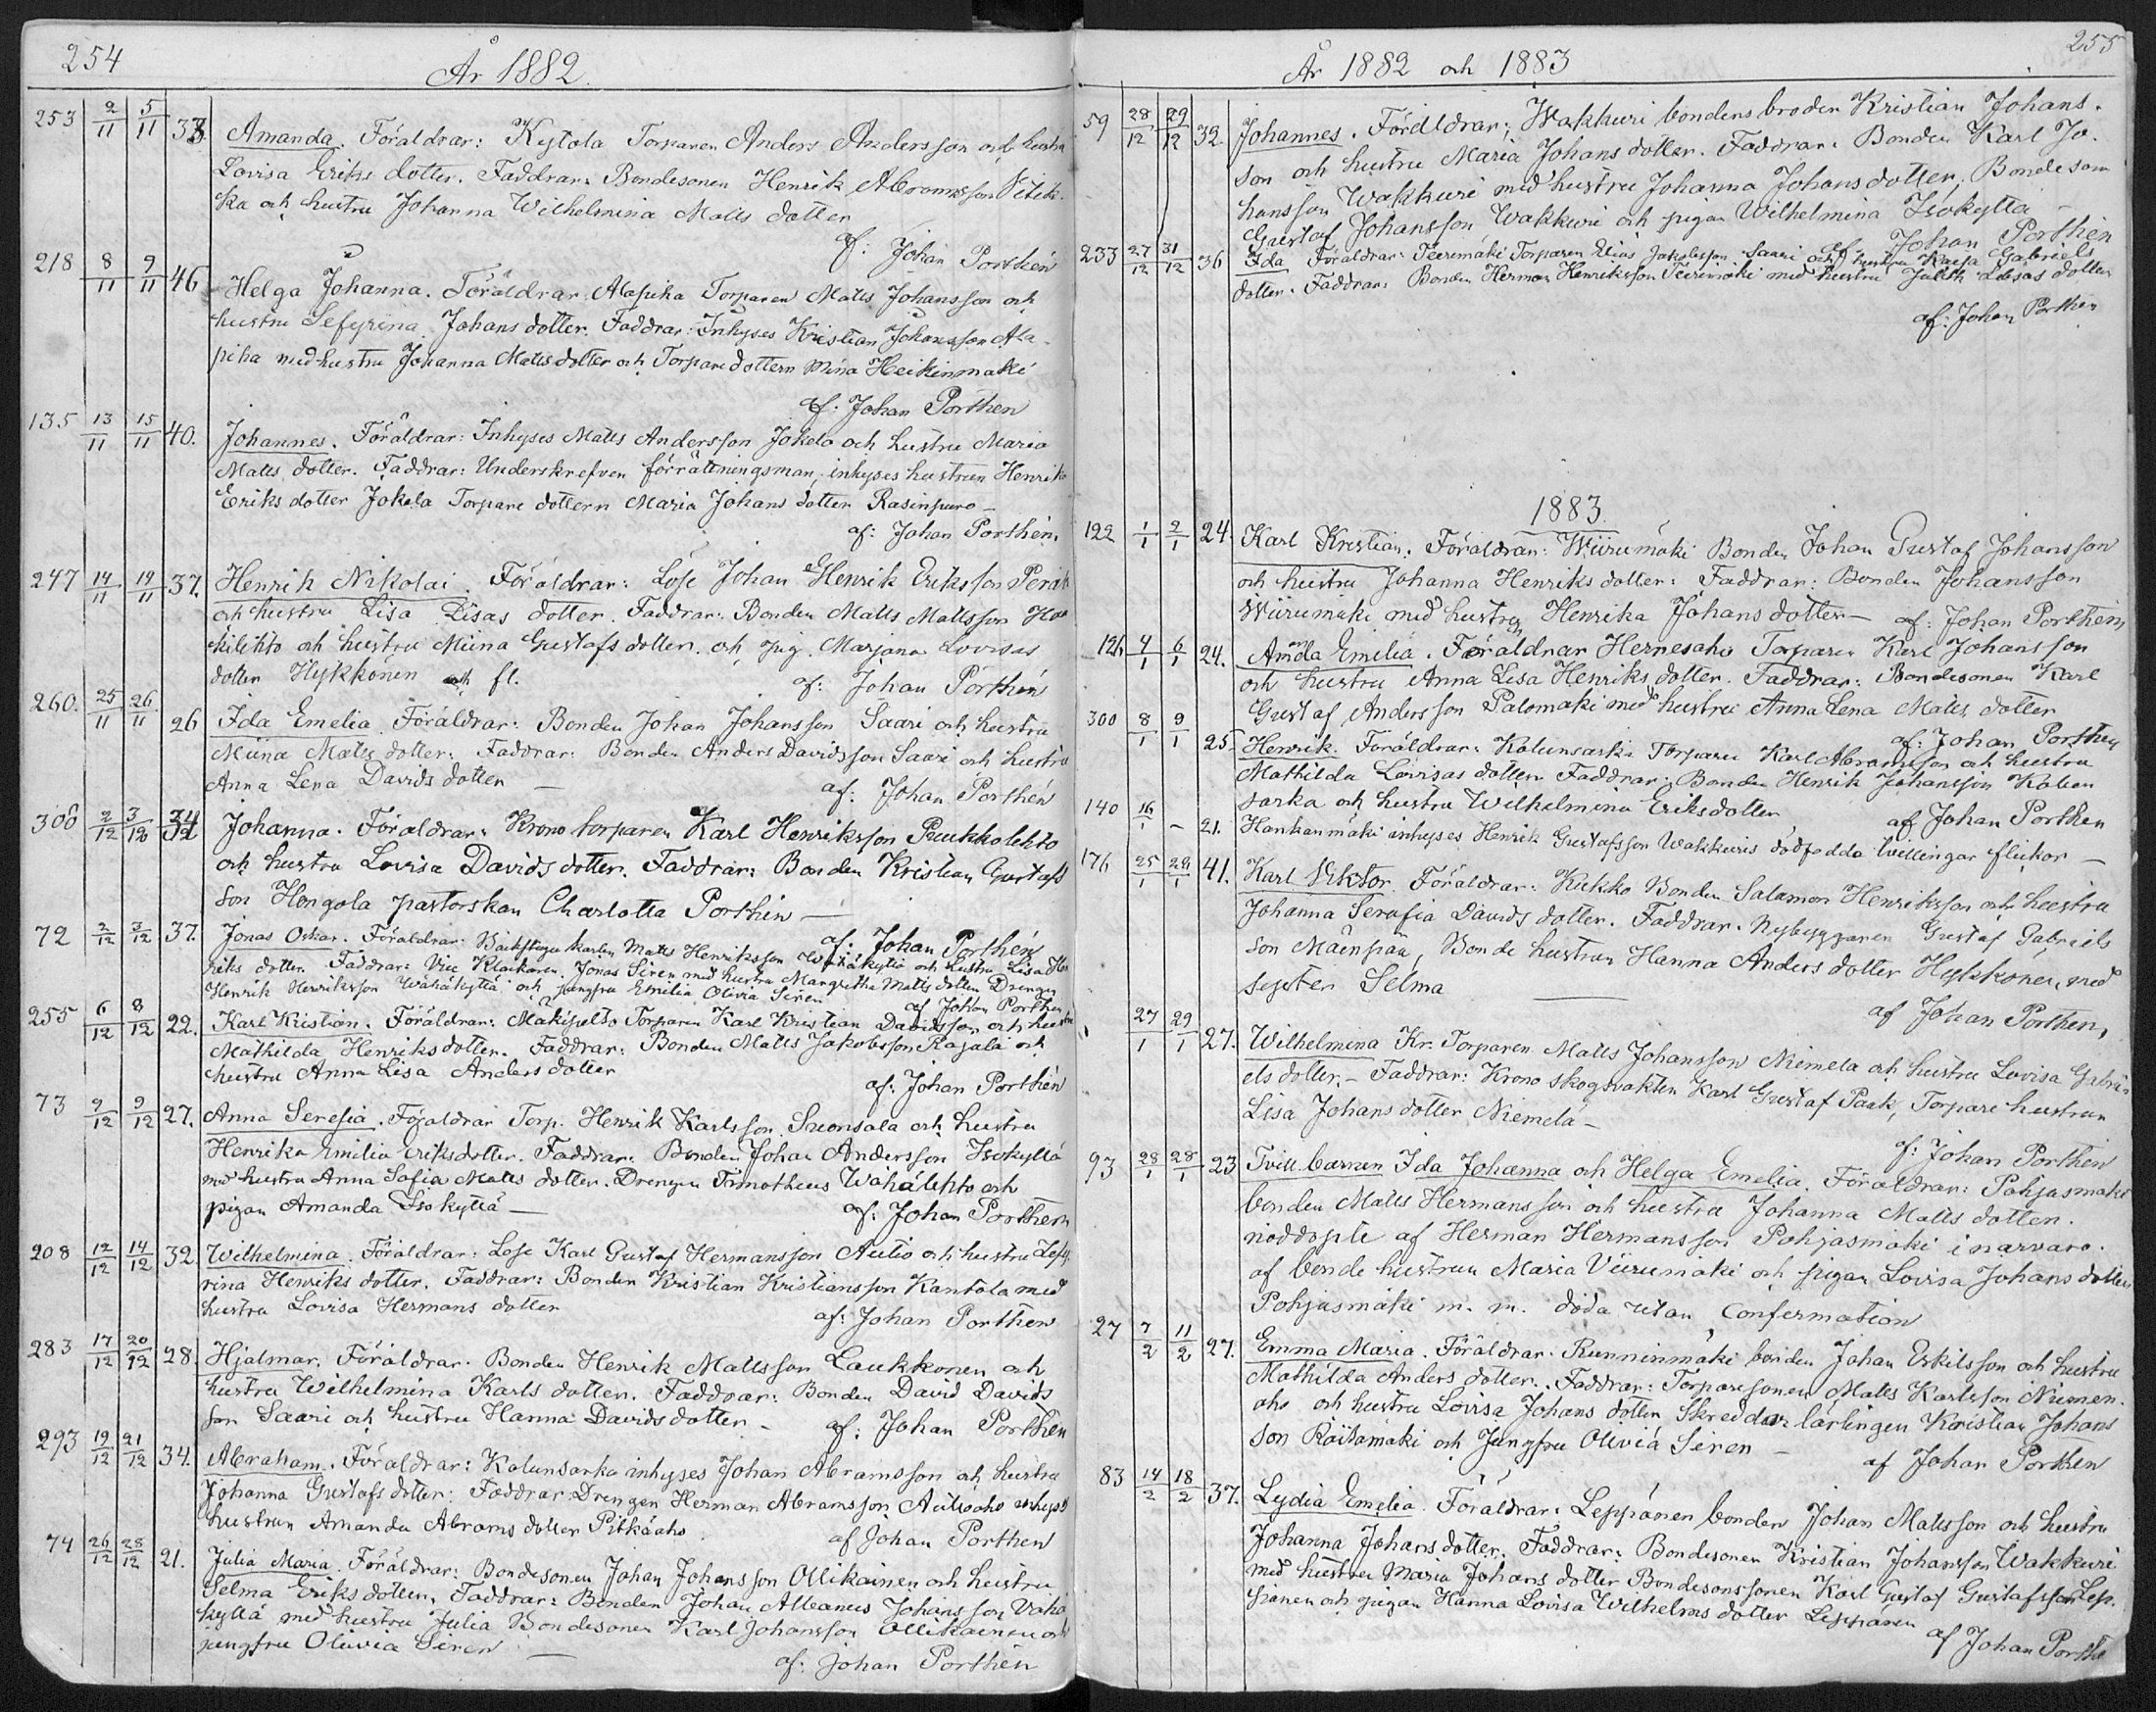 254
År 1882.
253 2/11 5/11 33 Amanda. Föräldrar: Kytola Torparen Anders Andersson och hustru
Lovisa Eriks dotter. Faddrar: Bondesonen Henrik Abramsson Pitik-
ka och hustru Johanna Wilhelmina Matts dotter
af: Johan Porthén
218 8/11 9/11 46 Helga Johanna. Föräldrar: Alapiha Torparen Matts Johansson och
hustru Sefyrina Johans dotter. Faddrar: Inhyses Kristian Johansson Ala-
piha med hustru Johanna Matts dotter och Torpare dottern Mina Heikinmäki
af: Johan Porthen
135 13/11 15/11 40. Johannes. Föräldrar: Inhyses Matts Andersson Jokela och hustru Maria
Matts dotter. Faddrar: Underskrefven förrättningsman, inhyses hustrun Henrika
Eriks dotter Jokela Torpare dottern Maria Johans dotter Rasinpuro –
af: Johan Porthén,
247 14/11 19/11 37. Henrik Nikolai. Föräldrar: Lose Johan Henrik Eriksson
och hustru Lisa Lisas dotter. Faddrar: Bonden Matts Mattsson
kilehto och hustru Miina Gustafs dotter. och pig. Marjana Lovisas
dotter Hykkönen och fl.
af: Johan Porthén
260. 25/11 26/11 26 Ida Emelia. Föräldrar: Bonden Johan Johansson Saari och hustru
Miina Matts dotter. Faddrar: Bonden Anders Davidsson Saari och hustru
Anna Lena Davids dotter –
af: Johan Porthén
300 2/12 3/12 Johanna. Föräldrar: Krono torparen Karl Henriksson Peukkolehto
och hustru Lovisa Davids dotter. Faddrar: Bonden Kristian Gustafs
son Hongola pastorskan Charlotta Porthin –
af: Johan Porthén
72 2/12 3/12 37. Jonas Oskar. Föräldrar: Backstugu karlen Matts Henriksson Wähäkytä och hustru Lisa Hen
riks dotter. Faddrar: Vice Klockaren Jonas Siren med hustru Margretha Matts dotter Drengen
Henrik Henriksson Wähäkyttä och jungfru Emilia Olivia Siren
af Johan Porthen
255 6/12 8/12 22. Karl Kristian. Föräldrar: Mäkipelto Torparen Karl Kristian Davidsson och hustru
Mathilda Henriks dotter. Faddrar: Bonden Matts Jakobsson Rajala och
hustru Anna Lisa Anders dotter
af: Johan Porthén
73 9/12 9/12 27. Anna Serefia. Föräldrar Torp. Henrik Karlsson Sneonsala och hustru
Henrika Emilia Eriksdotter. Faddrar: Bonden Johan Andersson Isokyttä
med hustru Anna Sofia Matts dotter. Drengen Timotheus Wähälehto och
pigan Amanda Isokyttä –
af: Johan Porthen
208 12/12 14/12 32. Wilhelmina. Föräldrar: Lose Karl Gustaf Hermansson Autio och hustru Sefy-
rina Henriks dotter. Faddrar: Bonden Kristian Kristiansson Kantola med
hustru Lovisa Hermans dotter
af: Johan Porthen
283 17/12 20/12 28. Hjalmar. Föräldrar. Bonden Henrik Mattsson Laukkonen och
hustru Wilhelmina Karls dotter. Faddrar: Bonden David Davids
son Saari och hustru Hanna Davids dotter –
af: Johan Porthen
293 19/12 21/12 34. Abraham. Föräldrar: Kalunsarka inhyses Johan Abramsson och hustru
Johanna Gustafs dotter: Faddrar: Drengen Herman Abramsson Autioaho inhyses
hustrun Amanda Abrams dotter Pitkäaho
af Johan Porthen
74 26/12 28/12 21. Julia Maria. Föräldrar: Bondesonen Johan Johansson Ollikainen och hustru
Selma Eriks dotter, Faddrar: Bonden Johan Albanus Johansson Vähä
kyttä med hustru Julia Bondesonen Karl Johansson Ollikainen och
jungfru Olivia Siren –
af: Johan Porthén
255
År 1882 och 1883
59 28/12 29/12 32 Johannes. Föräldrar: Wakkuri bondens broder Kristian Johans-
son och hustru Maria Johans dotter. Faddrar: Bonden Karl Jo-
hansson Wakkuri med hustru Johanna Johans dotter, Bondeson
Gustaf Johansson Wakkuri och pigan Wilhelmina Isokyttä –
af: Johan Porthén
233 27/12 31/12 36 Ida Föräldrar: Teerimäki Torparen Elias Jakobsson Saari och hustru Kaisa Gabriels
dotter. Faddrar: Bonden Herman Henriksson Teerimäki med hustru Lisas dotter
af: Johan Porthen
1883
122 1/1 2/1 24. Karl Kristian. Föräldrar: Wiirumäki Bonden Johan Gustaf Johansson
och hustru Johanna Henriks dotter: Faddrar: Bonden Johansson
Wiirumäki med hustru Henrika Johans dotter –
af: Johan Porthén,
126 4/1 6/1 24. Amanda Emilia. Föräldrar Hernesaho Torparen Karl Johansson
och hustru Anna Lisa Henriks dotter. Faddrar: Bondesonen Karl
Gustaf Andersson Palomäki med hustru Anna Lena Matts dotter
af: Johan Porthen
300 8/1 9/1 25. Henrik. Föräldrar: Kalunsarka Torparen Karl Abramsson och hustru
Mathilda Lovisas dotter Faddrar: Bonden Henrik Johansson Kalun
sarka och hustru Wilhelmina Eriksdotter,
af Johan Porthen
140 16/1 – 21. Hankanmäki inhyses Henrik Gustafsson Wakkuris dödfödda tvillingar flickor –
176 25/1 28/1 41. Karl Viktor. Föräldrar: Kukko Bonden Salamon Henriksson och hustru
Johanna Serafia Davids dotter. Faddrar. Nybyggaren Gustaf Gabriels
son Mäenpää, Bonde hustrun Hanna Anders dotter Hykkönen, med
syster Selma –
af Johan Porthen,
27/1 29/1 27. Wilhelmina Kr. Torparen Matts Johansson Niemelä och hustru Lovisa Gabri-
els dotter. – Faddrar: Krono skogsvakten Karl Gustaf Pack, Torpare hustrun
Lisa Johans dotter Niemelä –
af: Johan Porthén
93 28/1 28/1 23 Tvill barnen Ida Johanna och Helga Emelia. Föräldrar: Pohjasmäki
bonden Matts Hermansson och hustru Johanna Matts dotter.
nöddöpte af Herman Hermansson Pohjasmäki i närvaro.
af bonde hustrun Maria Viirumäki och pigan Lovisa Johans dotter
Pohjasmäki m. m. döda utan Confermation
27 7/2 11/2 27. Emma Maria. Föräldrar: Runninmäki bonden Johan Erkilsson och hustru
Mathilda Anders dotter. Faddrar: Torparesonen Matts Karlsson Niemen-
aho och hustru Lovisa Johans dotter Skreddar lärlingen Kristian Johans
son Räitamäki och Jungfru Olivia Siren –
af Johan Porthen
83 14/2 18/2 37. Lydia Emelia. Föräldrar: Leppänen bonden Johan Mattsson och hustru
Johanna Johans dotter. Faddrar: Bondesonen Kristian Johansson Wakkuri
med hustru Maria Johans dotter Bondesonssonen Karl Gustaf Gustafsson Lep-
pänen och pigan Hanna Lovisa Wilhelms dotter Leppänen
af Johan Porthe